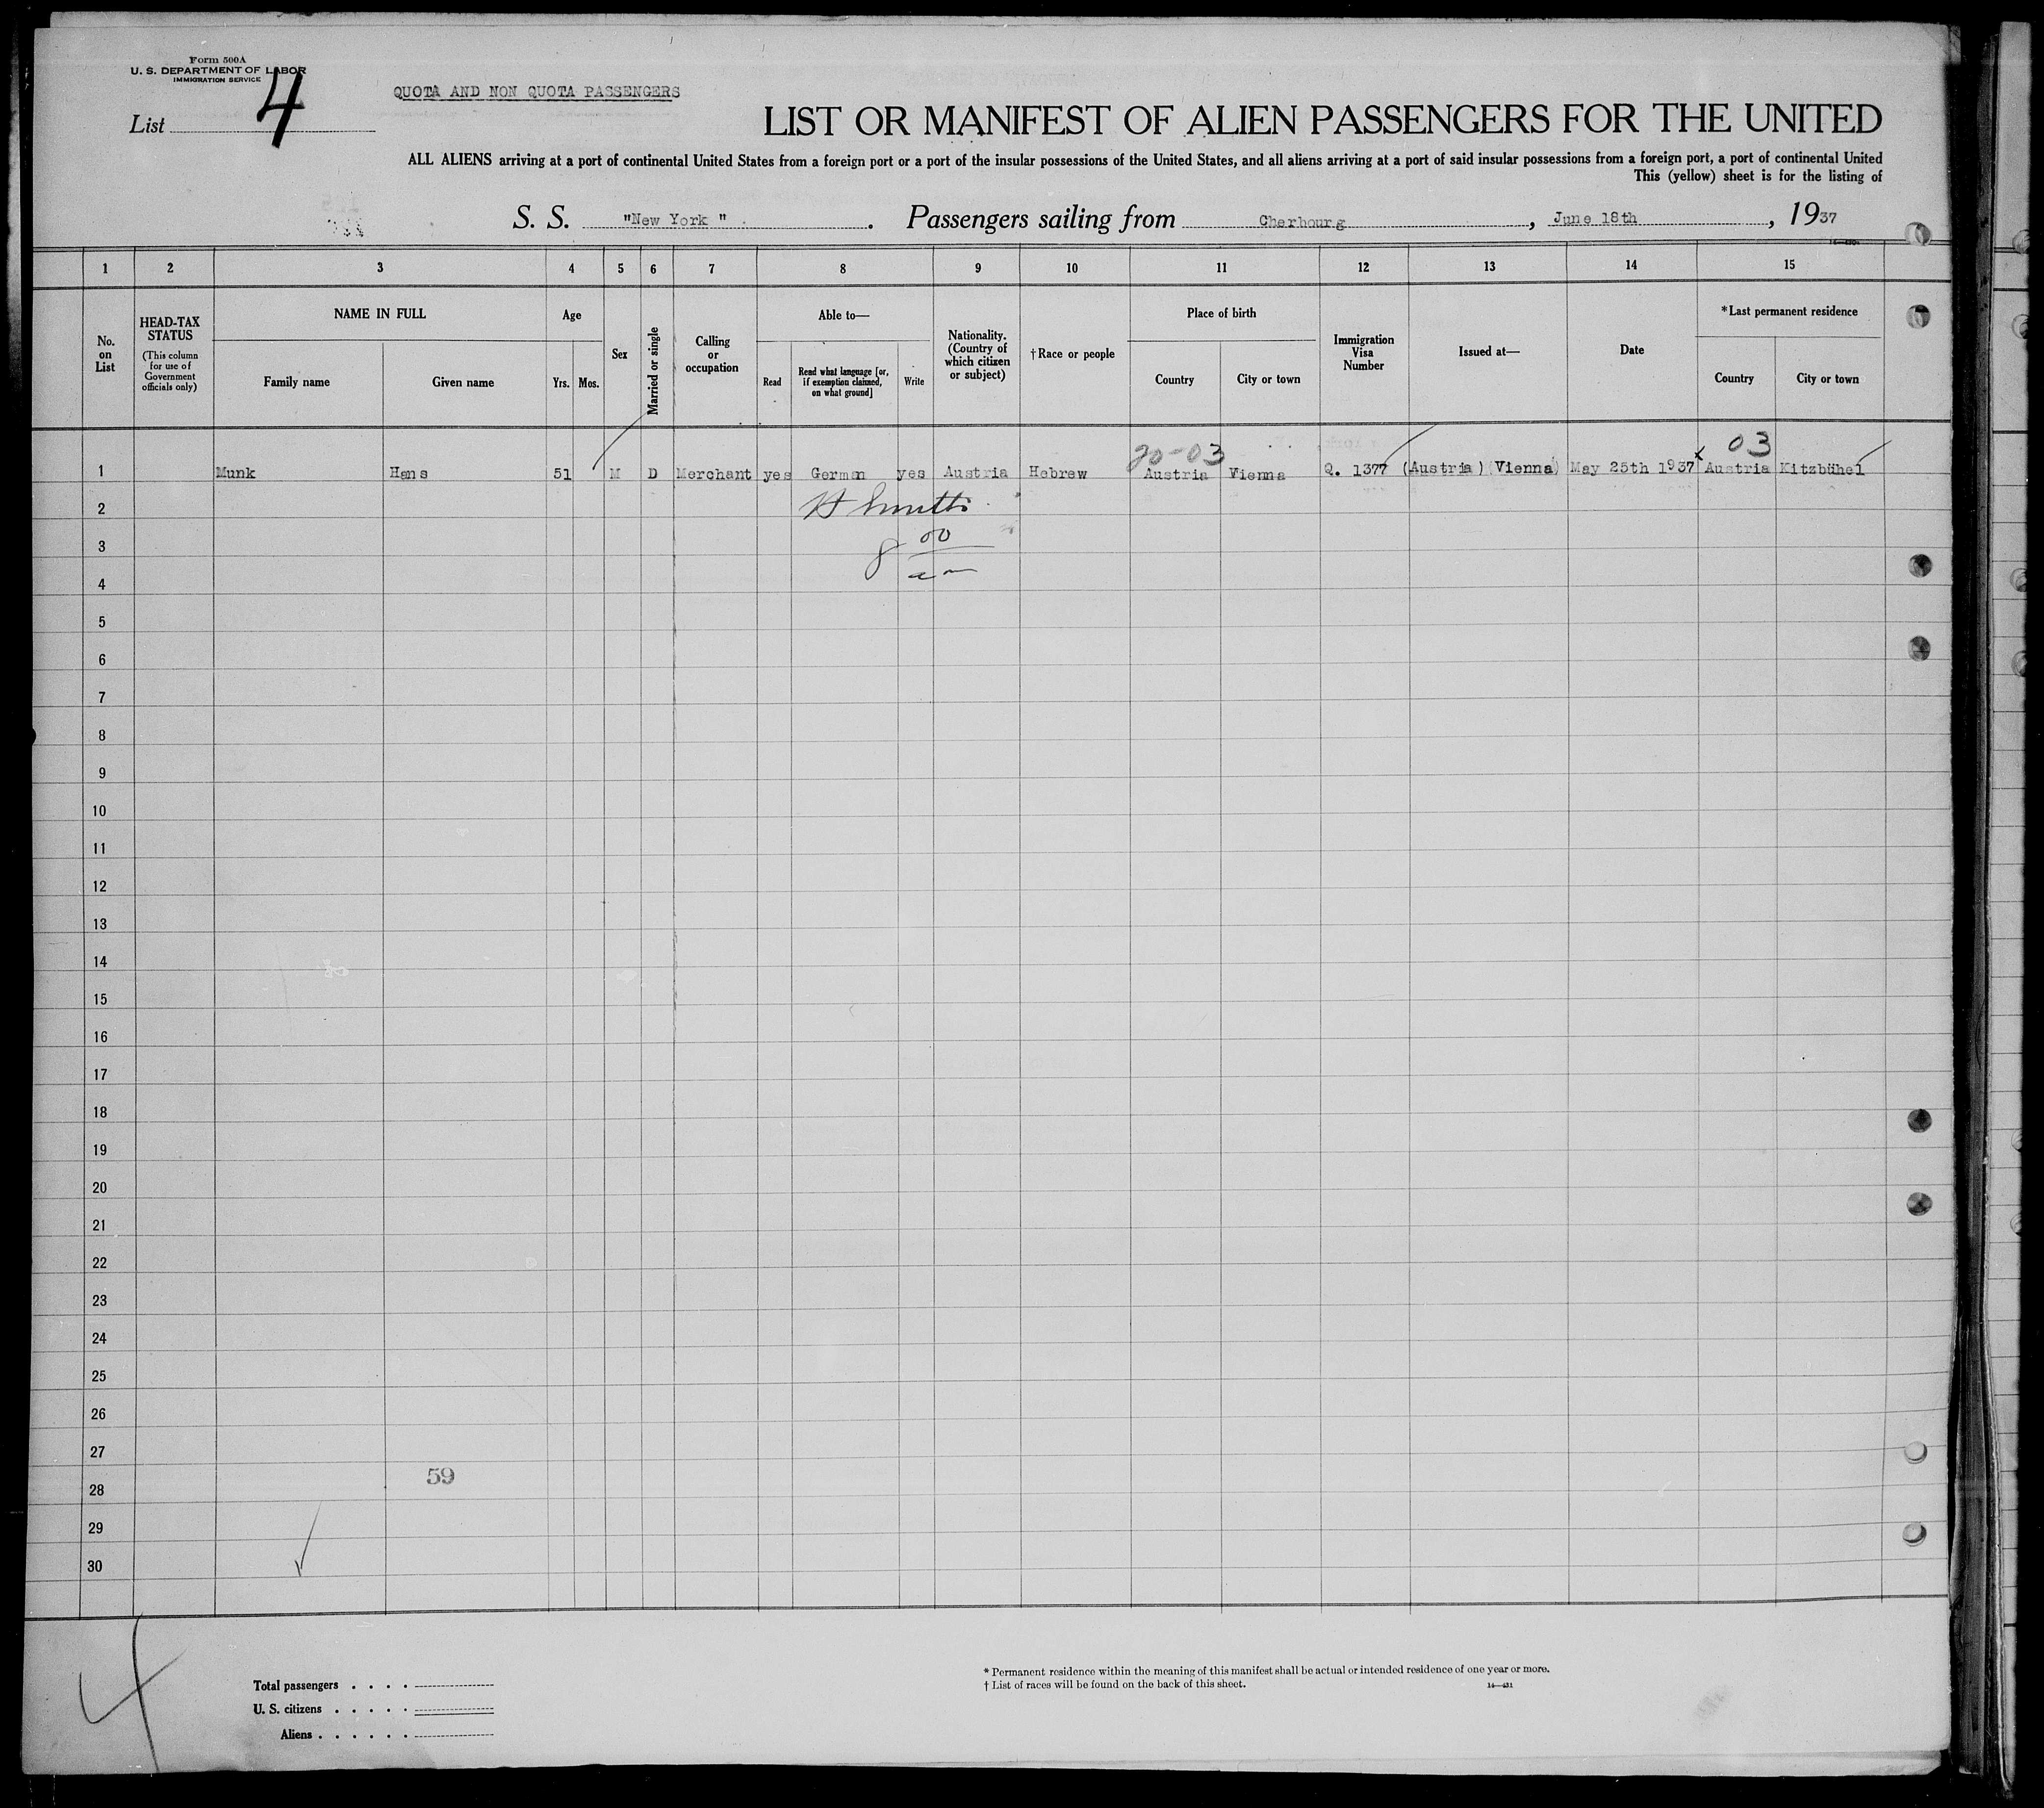 Form 500A
U. S. DEPARTMENT OF LABOR
IMMIGRATION SERVICE
List 4
QUOTA AND NON QUOTA PASSENGERS
LIST OR MANIFEST OF ALIEN PASSENGERS FOR THE UNITED
ALL ALIENS arriving at a port of continental United States from a foreign port or a port of the insular possessions of the United States, and all aliens arriving at a port of said insular possessions from a foreign port, a port of continental United
This (yellow) sheet is for the listing of
S. S. "New York". Passengers sailing from Cherbourg, June 18th, 1937
1 2 3 4 5 6 7 8 9 10 11 12 13 14 15
No. on List
HEAD-TAX STATUS
(This column for use of Government officials only)
NAME IN FULL
Family name
Given name
Age
Yrs.
Mos.
Sex
Married or single
Calling or occupation
Able to—
Read
Read what language [or, if exemption claimed, on what ground]
Write
Nationality. (Country of which citizen or subject)
†Race or people
Place of birth
Country
City or town
Immigration Visa Number
Issued at—
Date
*Last permanent residence
Country
City or town
20-03
03
1 Munk Hans 51 M D Merchant yes German yes Austria Hebrew Austria Vienna Q. 1377 (Austria) (Vienna) May 25th 1937 x Austria Kitzbühel
2
3
8 00
4
5
6
7
8
9
10
11
12
13
14
15
16
17
18
19
20
21
22
23
24
25
26
27
59
28
29
30
4
Total passengers . . . .
U. S. citizens . . . . .
Aliens . . . . . .
* Permanent residence within the meaning of this manifest shall be actual or intended residence of one year or more.
† List of races will be found on the back of this sheet.